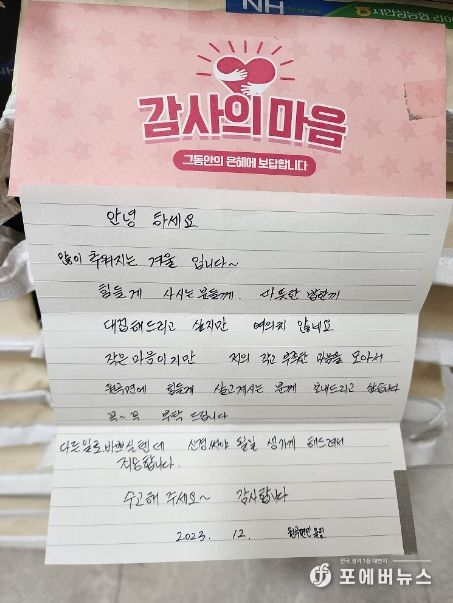 NH
감사의 마음
그동안의 은혜에 보답합니다
안녕 하세요
많이 추워지는 겨울 입니다~
힘들게 사시는 분들께. 따뜻한 밥한끼
대접해드리고 싶지만 여의치 않네요
작은마음이지만 저의 작고 부족한 마음을 모아서
원곡면에 힘들게 살고계시는 분께 보내드리고 싶습니다
꼭~꼭 부탁 드립니다
다른일로바쁘실텐데 신경써야 될일 생기게 해드려서
죄송합니다.
수고해 주세요~ 감사합니다
2023. 12.
전국, 경기 1등 대변지
포에버뉴스